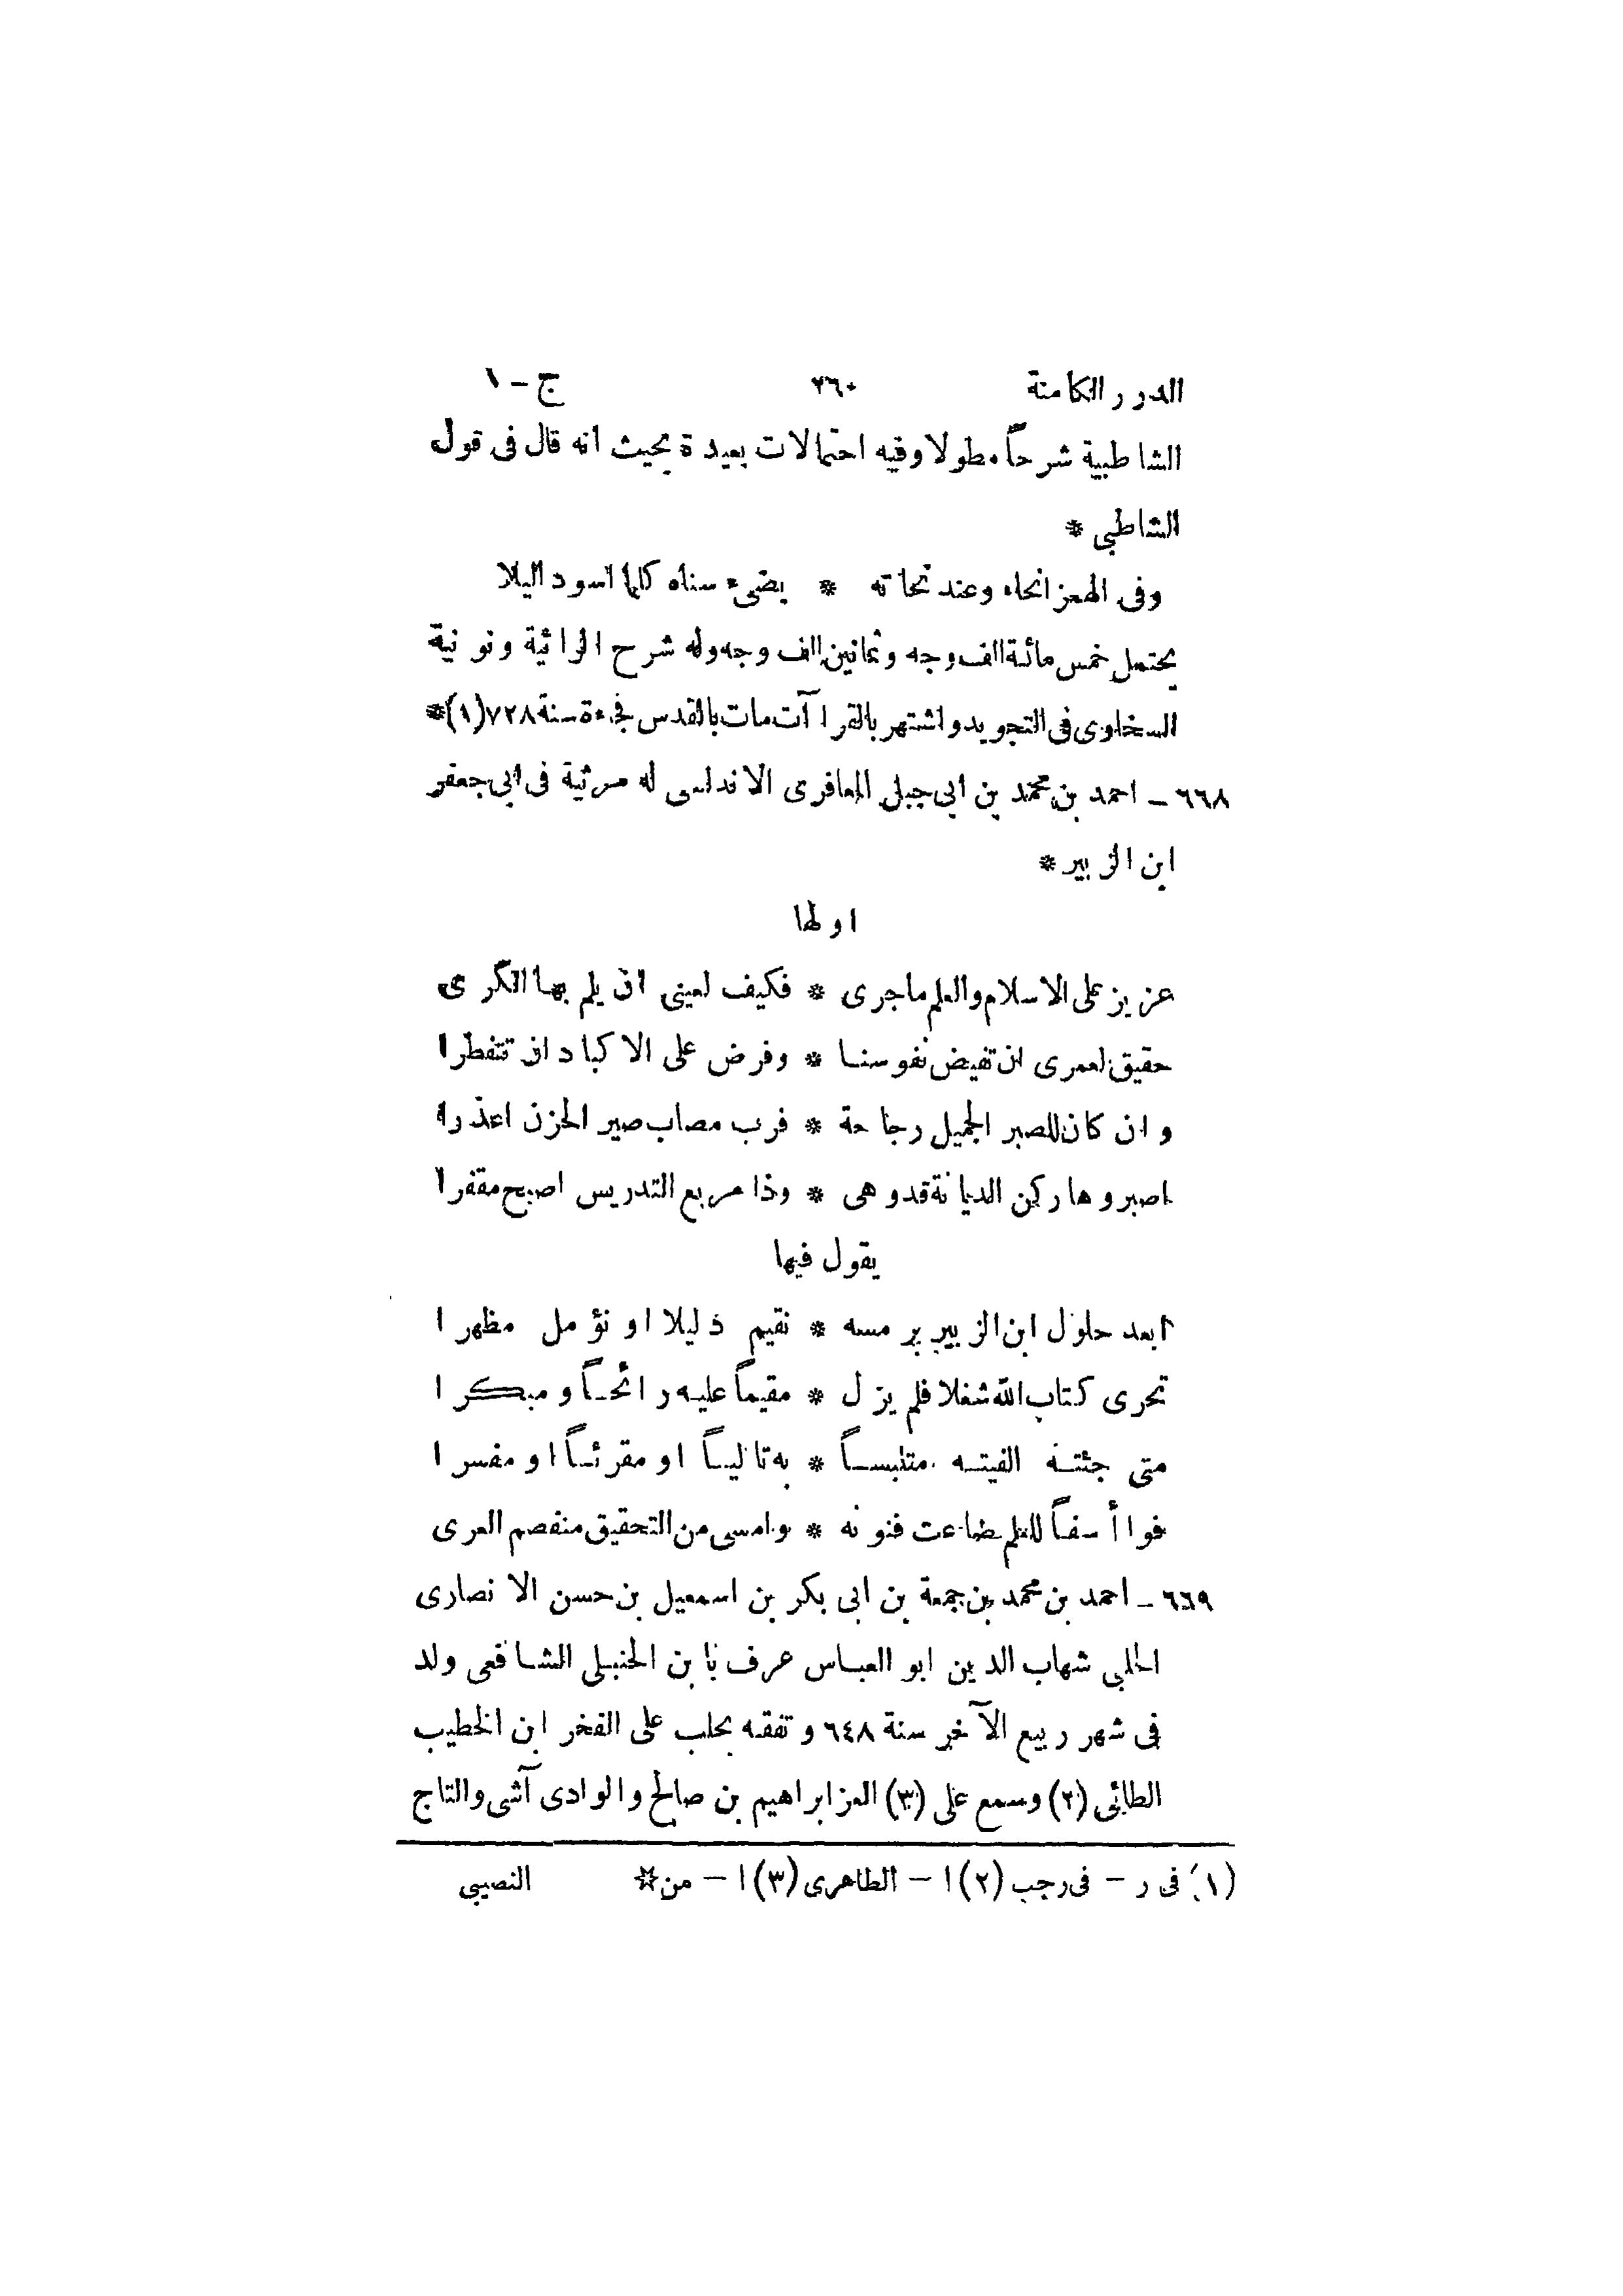 الدرر الكامنة ٢٦٠ ج – ١
الشاطبية شرحاً مطولا وفيه احتمالات بعيدة بحيث انه قال فى قول
الشاطبى *
وفى الهمز انحاء وعند نحاته * يضىء سناه كلما اسود اليلا
يحتمل خمس مائة الف وجه وثمانين الف وجه وله شرح الرائية ونونية
السخاوى فى التجويد واشتهر بالقرا آت مات بالقدس فجءة سنة ٧٢٨ (١) *
٦٦٨ – احمد بن محمد بن ابى جبل المعافرى الاندلسى له مرثية فى ابى جعفر
ابن الزبير *
اولها
عزيز على الاسلام والعلم ماجرى * فكيف لعينى ان يلم بها الكرى
حقيق لعمرى ان تفيض نفوسنا * وفرض على الاكباد ان تتفطرا
وان كان للصبر الجميل رجاحة * فرب مصاب صير الحزن اعذرا
اصبر وها ركن الديانة قد وهى * وذا مربع التدريس اصبح مقفرا
يقول فيها
ابعد حلول ابن الزبير برمسه * نقيم ذليلا او نؤمل مظهرا
تحرى كتاب الله شغلا فلم يزل * مقيماً عليه رائحاً ومبكرا
متى جئته الفيته متلبساً * به تالياً او مقرئاً او مفسرا
فوا أسفاً للعلم ضاعت فنونه * وامسى من التحقيق منفصم العرى
٦٦٩ – احمد بن محمد بن جمعة بن ابى بكر بن اسمعيل بن حسن الانصارى
الحلبى شهاب الدين ابو العباس عرف بابن الحنبلى الشافعى ولد
فى شهر ربيع الآخر سنة ٦٤٨ وتفقه بحلب على الفخر ابن الخطيب
الطائى (٢) وسمع على (٣) العز ابراهيم بن صالح والوادى آشى والتاج
(١) فى ر – فى رجب (٢) ا – الطاهرى (٣) ا – من ☆ النصيبى